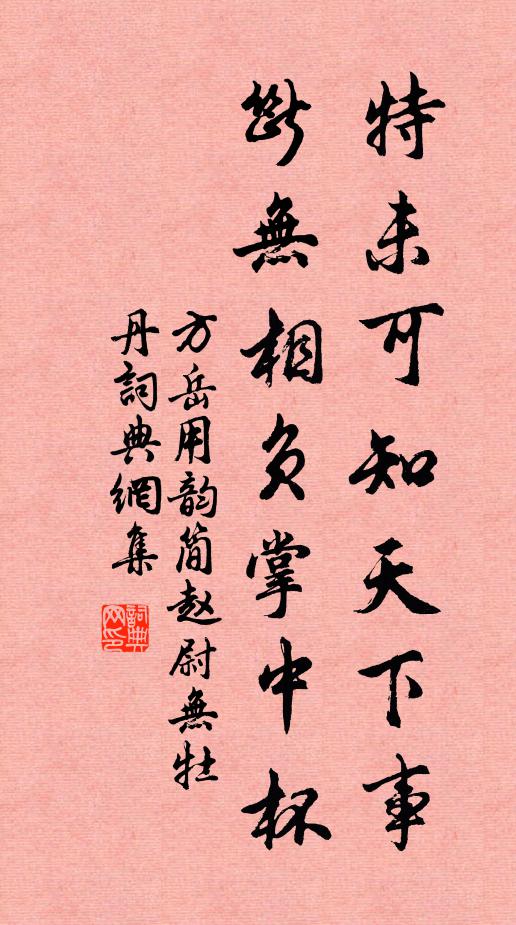 特未可知天下事
断無相负掌中杯
方岳用韵简赵尉無牡
丹詞典網集
詞典網印